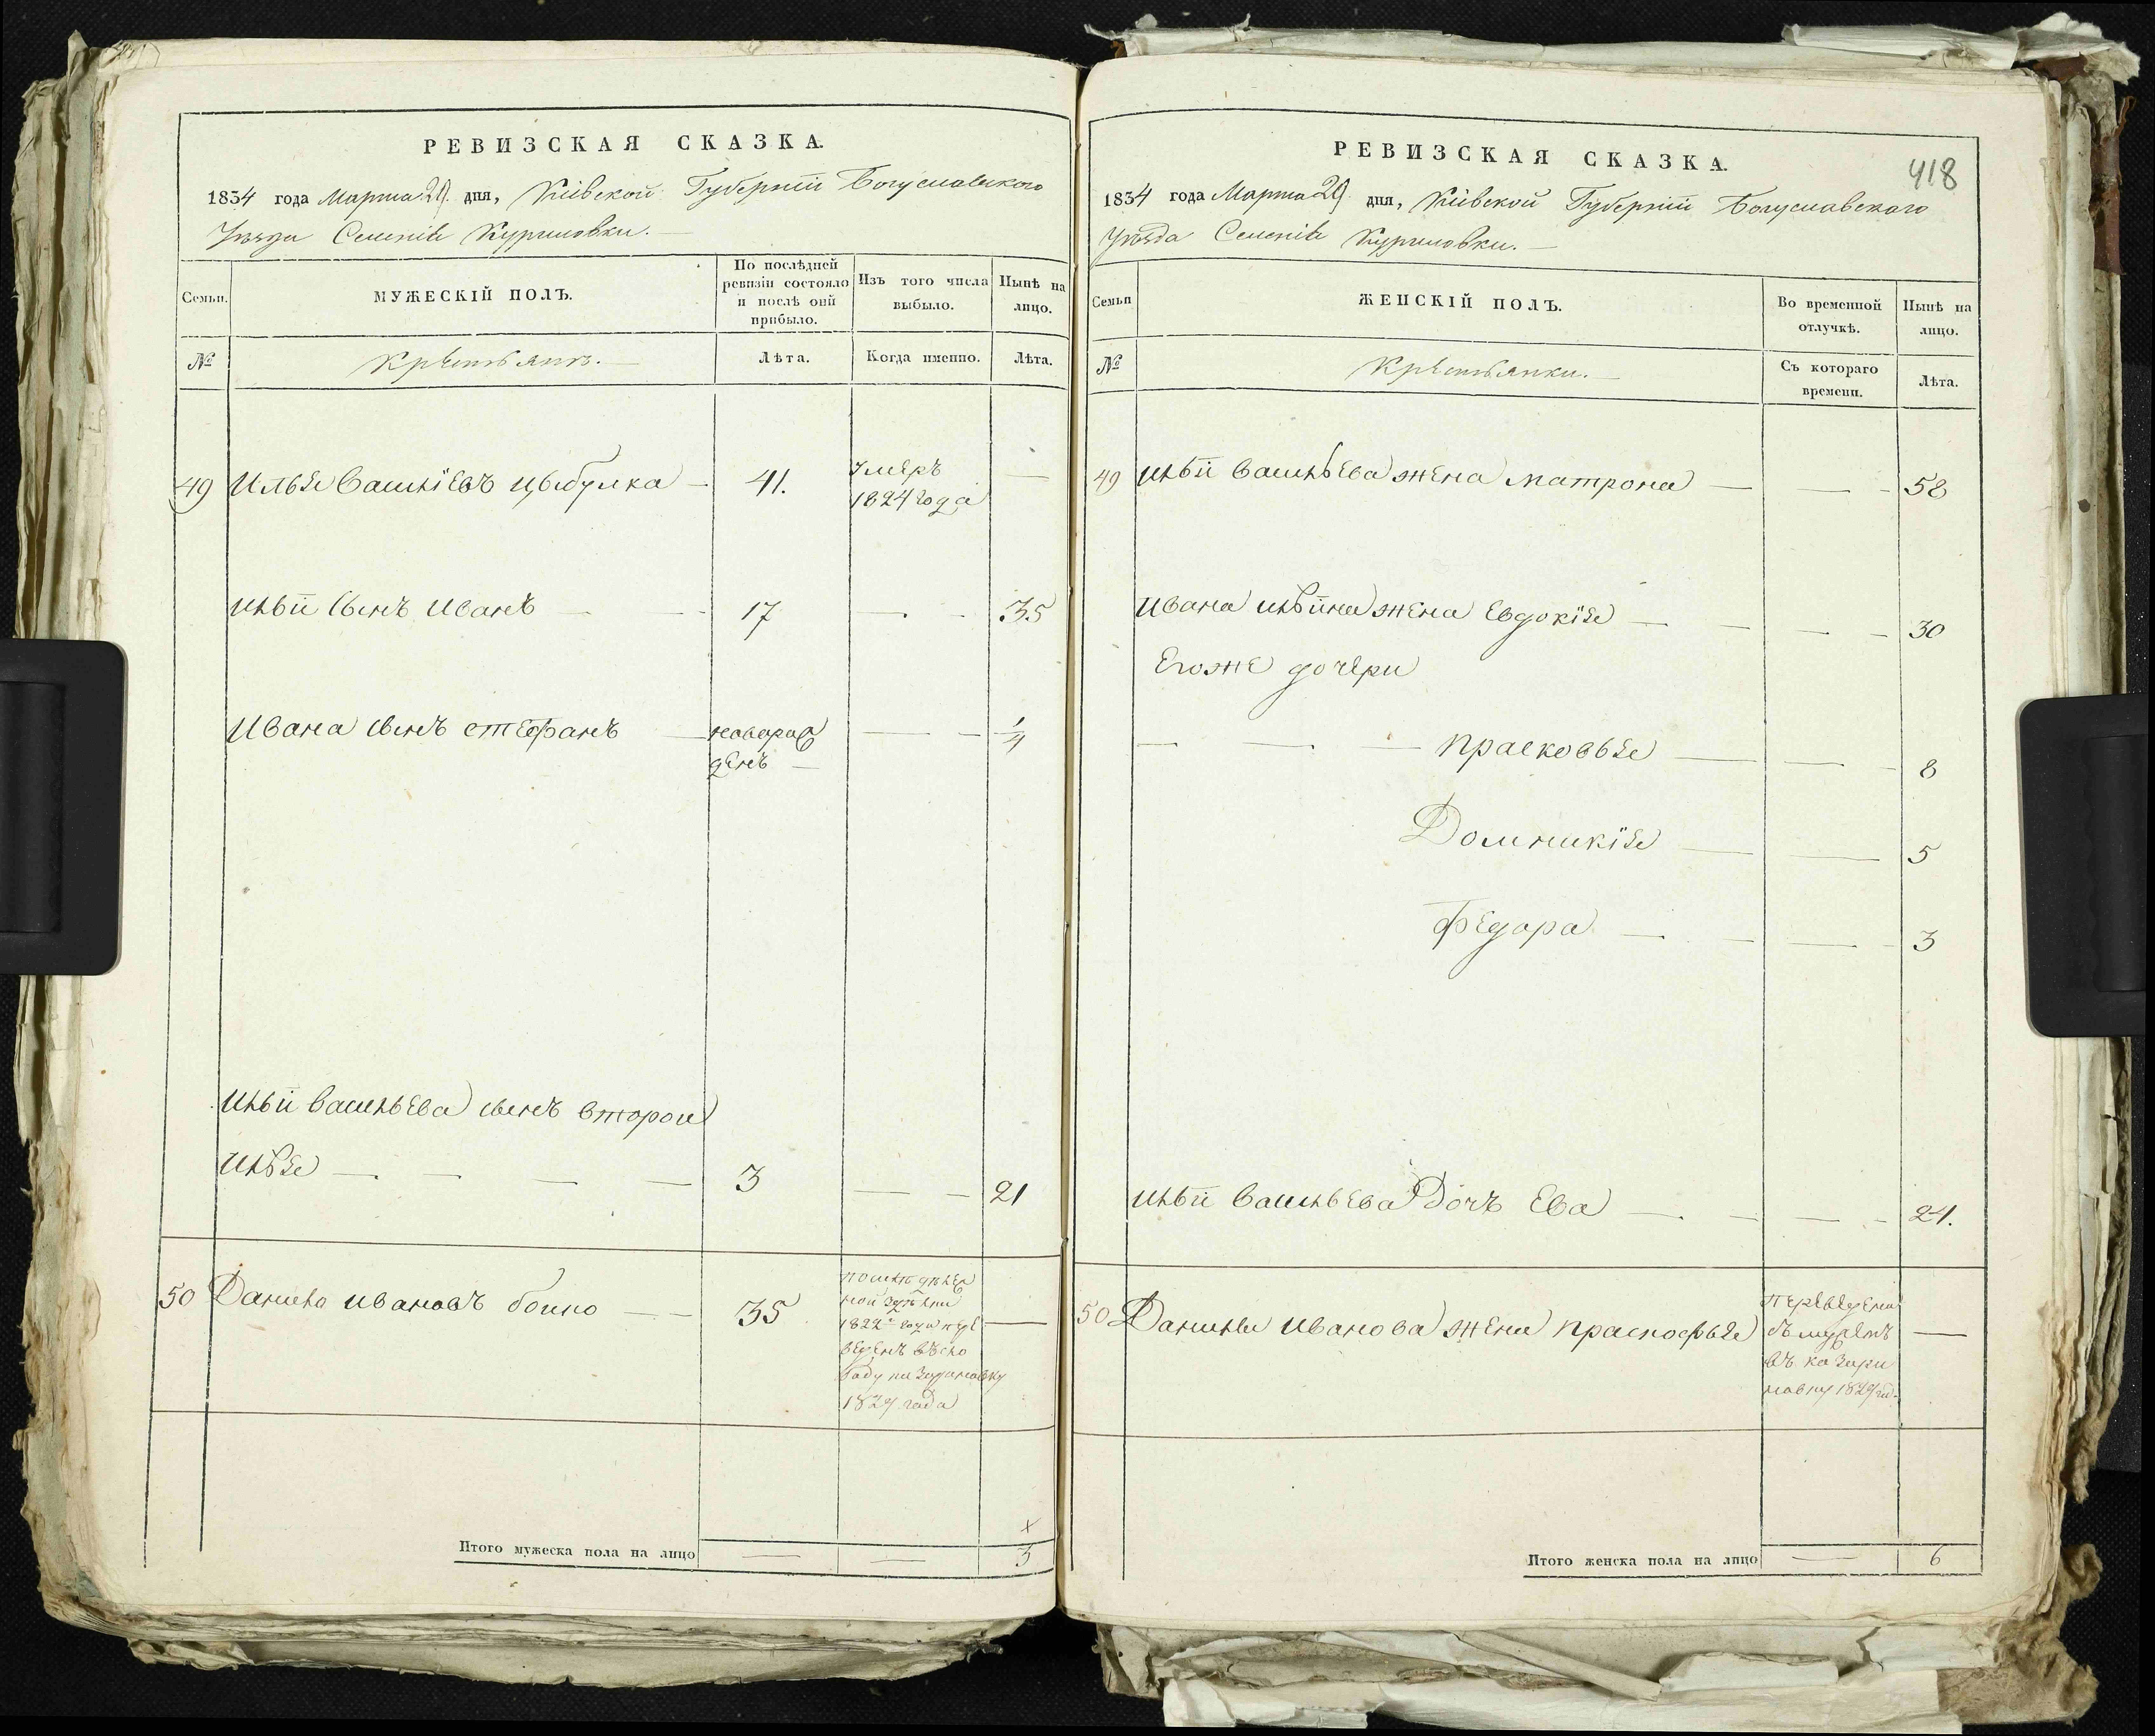 РЕВИЗСКАЯ СКАЗКА.
1834 года Марта 29. дня, Кіевской Губерніи Богуславского
Уѣзда Селенія Куриловки.
Семьи.
МУЖЕСКІЙ ПОЛЪ.
По послѣдней ревизіи состояло и послѣ оной прибыло.
Изъ того числа выбыло.
Нынѣ на лицо.
№
Крестьянъ.
Лѣта.
Когда именно.
Лѣта.
49 Илья Васильевъ Цыбулка 41. умеръ
1824 года
Ильи сынъ Иванъ 17 35
Ивана сынъ Стефанъ новорож 1/4
денъ
Ильи Васильева сынъ второй
Илья 3 21
50 Данило Ивановъ бойко 35
1822 года пере
веденъ въ сло
боду
1829 года
Итого мужеска пола на лицо 3
418
РЕВИЗСКАЯ СКАЗКА.
1834 года Марта 29 дня, Кіевской Губерніи Богуславского
Уѣзда Селенія Куриловки.
Семьи
ЖЕНСКІЙ ПОЛЪ.
Во временной отлучкѣ.
Нынѣ на лицо.
№
Крестьянки.
Съ котораго времени.
Лѣта.
49 Ильи Васильева жена Матрона 58
Ивана Ильина жена Евдокія 30
Егоже дочери
Прасковья 8
Домникія 5
Федора 3
Ильи Васильева Дочь Ева 24.
50 Данилы Иванова жена Прасковья переведена
съ мужемъ
въ
1829 год.
Итого женска пола на лицо 6